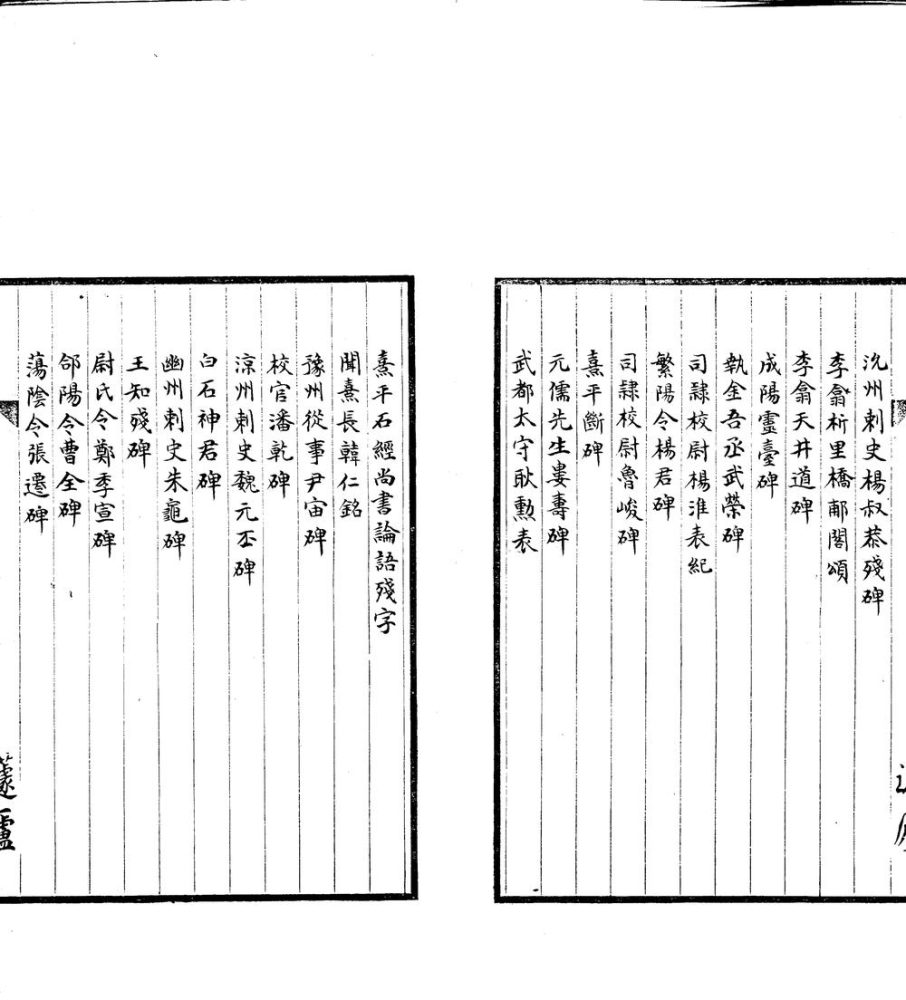 沇州刺史楊叔恭殘碑
李翕析里橋郙閣頌
李翕天井道碑
成陽靈臺碑
執金吾丞武榮碑
司隸校尉楊淮表紀
繁陽令楊君碑
司隸校尉魯峻碑
熹平斷碑
元儒先生婁壽碑
武都太守耿勳表
熹平石經尚書論語殘字
聞熹長韓仁銘
豫州從事尹宙碑
校官潘乾碑
涼州刺史魏元丕碑
白石神君碑
幽州刺史朱龜碑
王知殘碑
尉氏令鄭季宣碑
郃陽令曹全碑
蕩陰令張遷碑